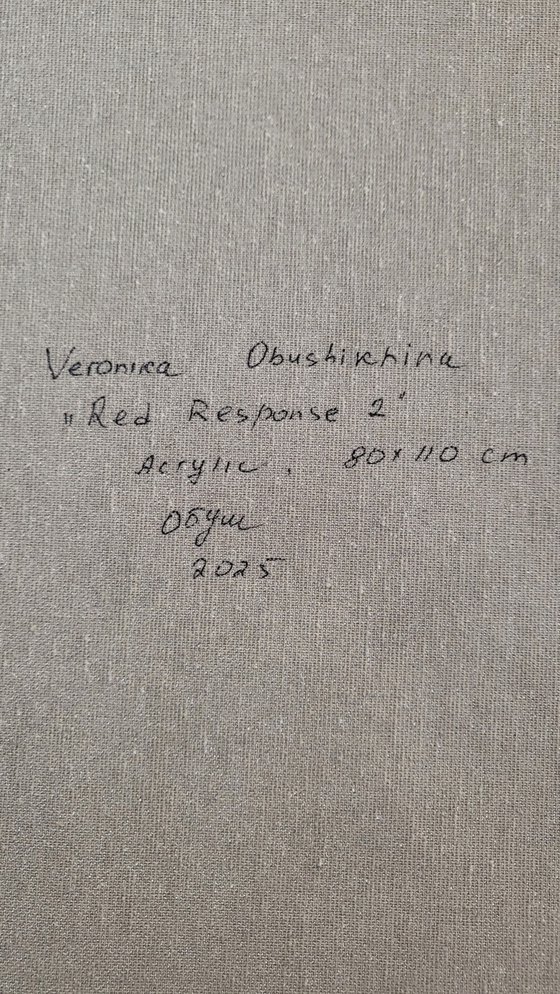 Veronika Obushikhina
„Red Response 2"
Acrylic. 80x110 cm
Обуш
2025